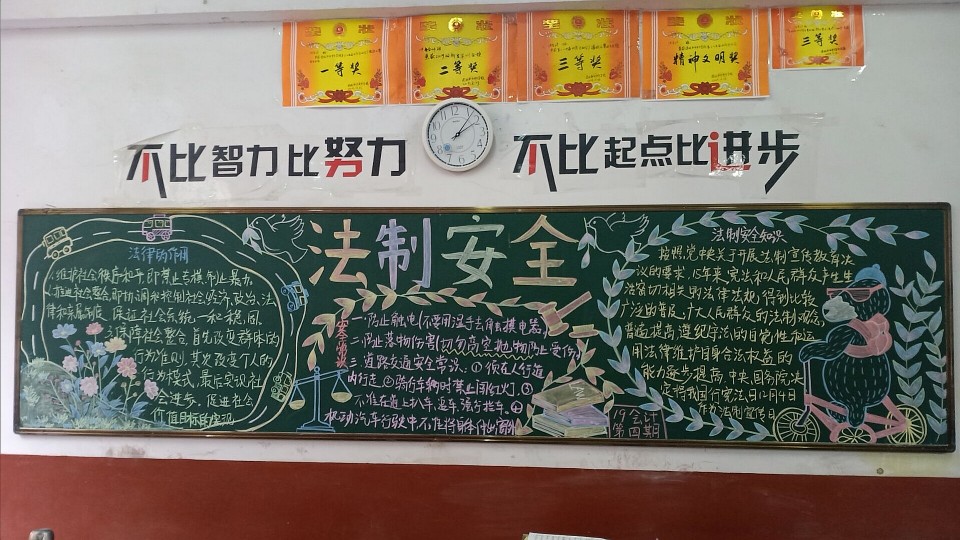 奖状
一等奖
奖状
二等奖
奖状
三等奖
奖状
精神文明奖
三等奖
不比智力比努力
不比起点比进步
法制安全
法律的作用
1.维护社会秩序和平,即禁止
社会整合,即协调和控制社会经济、政治、法
律和 保证社会系统统一和稳固。
保障社会整合 首先改变群体的
行为准则,其次改变个人的
行为模式,最后实现社
会进步、促进社会
价值目标的实现
安全常识
一.防止触电(不要用湿手去 摸电器)
二.防止落物伤害(切勿高空抛物防止受伤)
三.道路交通安全常识:①须在人行道
出行走.②骑行车辆时禁止闯红灯.③
不准在道上扒车、追车、强行拦车.④
机动汽车行驶中不准将身体伸出窗外
19会计
第四期
法制安全知识
按照党中央关于开展法制宣传教育决
议的要求,15年来,宪法和人民群众生产生
活密切相关的法律法规,得到比较
广泛的普及,广大人民群众的法制观念
普遍提高,遵纪守法的自觉性和运
用法律维护自身合法权益的
能力逐步提高,中央、国务院决
定将我国现行宪法日12月4日
作为法制宣传日